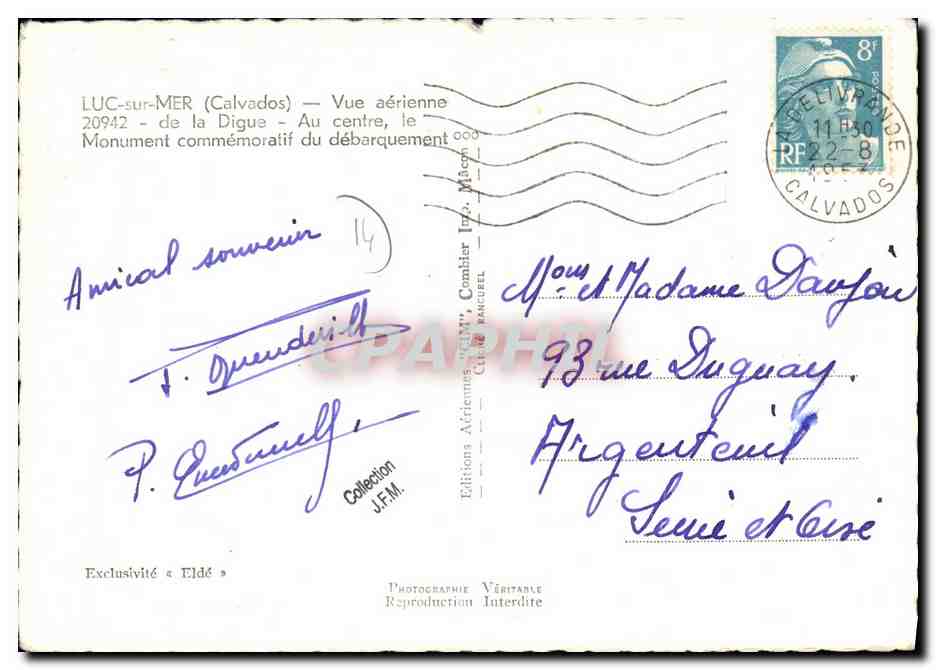 LUC-sur-MER (Calvados) — Vue aérienne
20942 - de la Digue - Au centre, le
Monument commémoratif du débarquement
Amical souvenir
14
J. Quendevill
P.
Collection
J.F.M.
Exclusivité « Eldé »
Editions Aériennes "CIM", Combier Imp. Mâcon
Cliché RANCUREL
Photographie Véritable
Reproduction Interdite
8F
POSTES
RF
LA DELIVRANDE
11H30
22-8
CALVADOS
Mons et Madame Daujou
93 rue Duguay.
Argenteuil
Seine et Oise
CPAPHIL